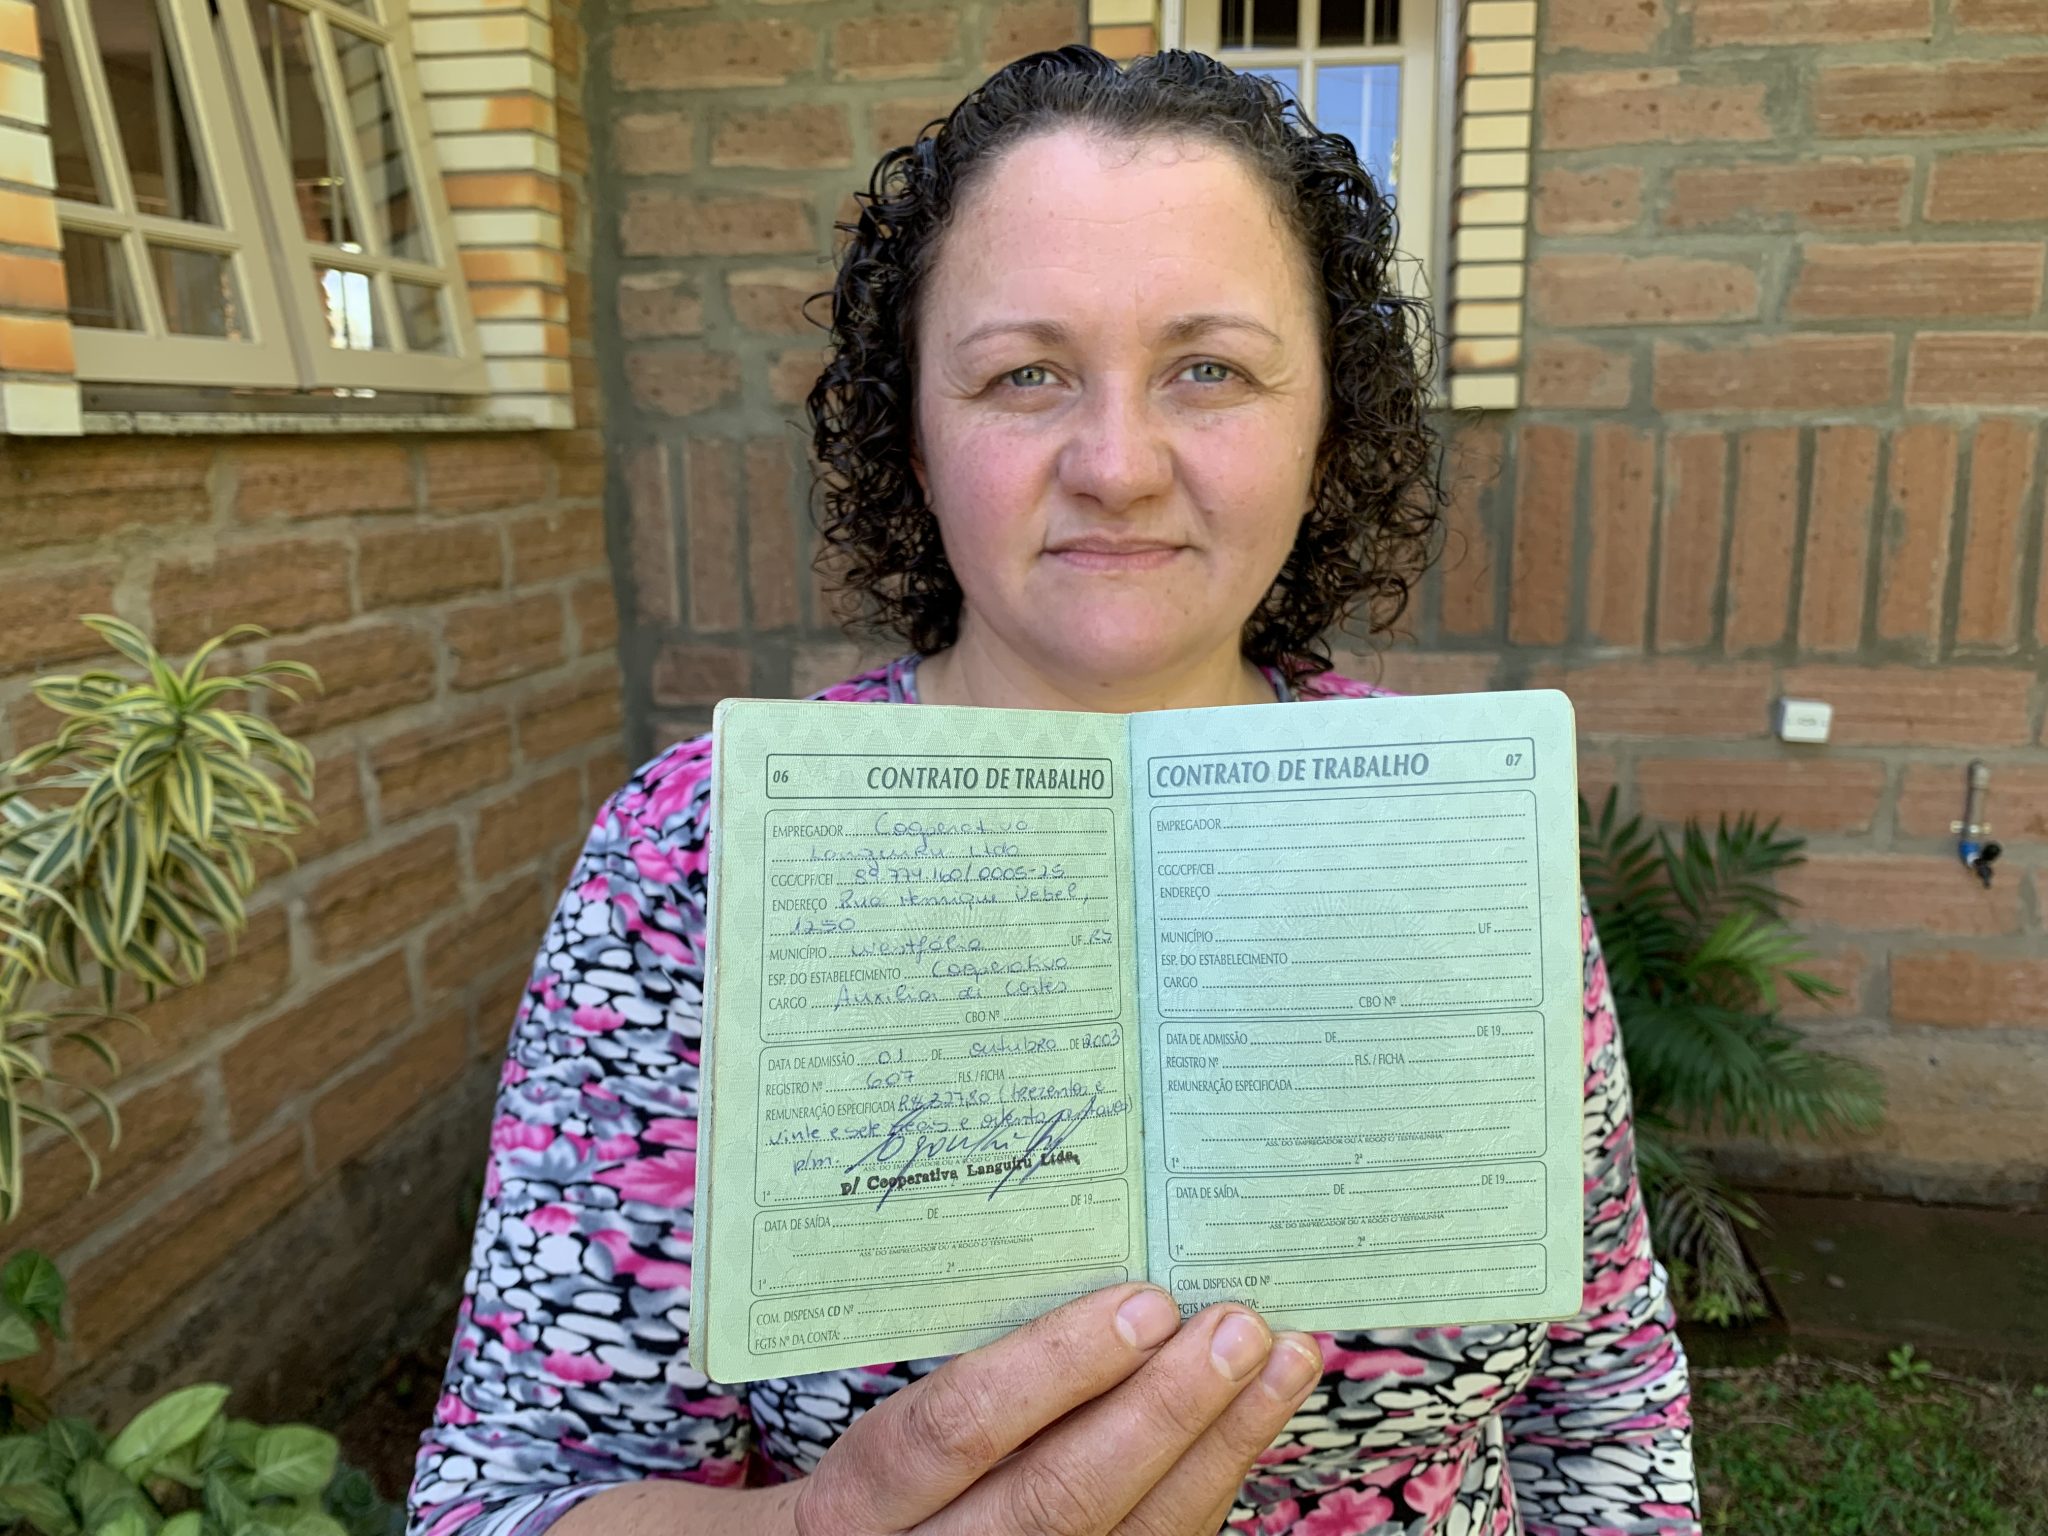 06 CONTRATO DE TRABALHO
EMPREGADOR Cooperativa
Languiru Ltda
CGC/CPF/CEI 89.774.160/0005-25
ENDEREÇO Rua Henrique Uebel,
1250
MUNICÍPIO Westfália UF RS
ESP. DO ESTABELECIMENTO Cooperativa
CARGO Auxiliar de Cortes
CBO Nº
DATA DE ADMISSÃO 01 DE outubro DE 2003
REGISTRO Nº 607 FLS. / FICHA
REMUNERAÇÃO ESPECIFICADA R$ 327,80 (trezentos e
vinte e sete reais e oitenta centavos)
p/m.
ASS. DO EMPREGADOR OU A ROGO C/ TESTEMUNHA
p/ Cooperativa Languiru Ltda.
1ª 2ª
DATA DE SAÍDA DE DE 19
ASS. DO EMPREGADOR OU A ROGO C/ TESTEMUNHA
1ª 2ª
COM. DISPENSA CD Nº
FGTS Nº DA CONTA:
CONTRATO DE TRABALHO 07
EMPREGADOR
CGC/CPF/CEI
ENDEREÇO
MUNICÍPIO UF
ESP. DO ESTABELECIMENTO
CARGO
CBO Nº
DATA DE ADMISSÃO DE DE 19
REGISTRO Nº FLS. / FICHA
REMUNERAÇÃO ESPECIFICADA
ASS. DO EMPREGADOR OU A ROGO C/ TESTEMUNHA
1ª 2ª
DATA DE SAÍDA DE DE 19
ASS. DO EMPREGADOR OU A ROGO C/ TESTEMUNHA
1ª 2ª
COM. DISPENSA CD Nº
FGTS Nº DA CONTA: